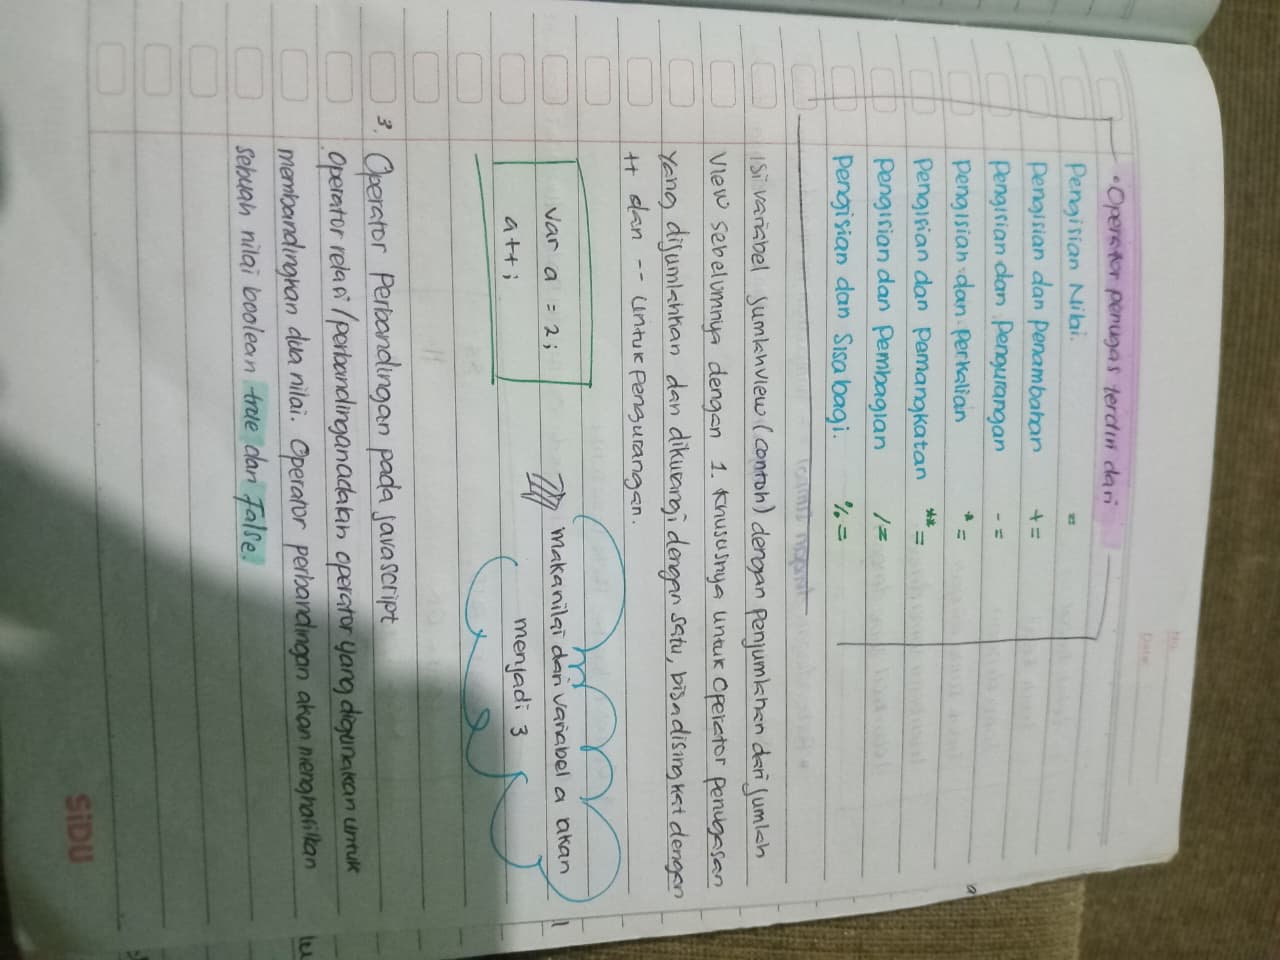 No.
Date
• Operator penugas terdiri dari
Pengisian Nilai. =
Pengisian dan penambahan +=
Pengisian dan pengurangan -=
Pengisian dan perkalian *=
Pengisian dan pemangkatan **=
Pengisian dan pembagian /=
Pengisian dan Sisa bagi. %=
isi variabel jumlahview (contoh) dengan penjumlahan dari jumlah
view sebelumnya dengan 1. Khususnya untuk operator penugasan
yang dijumlahkan dan dikurangi dengan satu, bisa disingkat dengan
++ dan -- untuk pengurangan.
var a = 2;
a++;
makanilai dari variabel a akan
menjadi 3
3. Operator Perbandingan pada Javascript
Operator relasi/perbandinganadalah operator yang digunakan untuk
membandingkan dua nilai. Operator perbandingan akan menghasilkan
sebuah nilai boolean true dan False.
SiDU